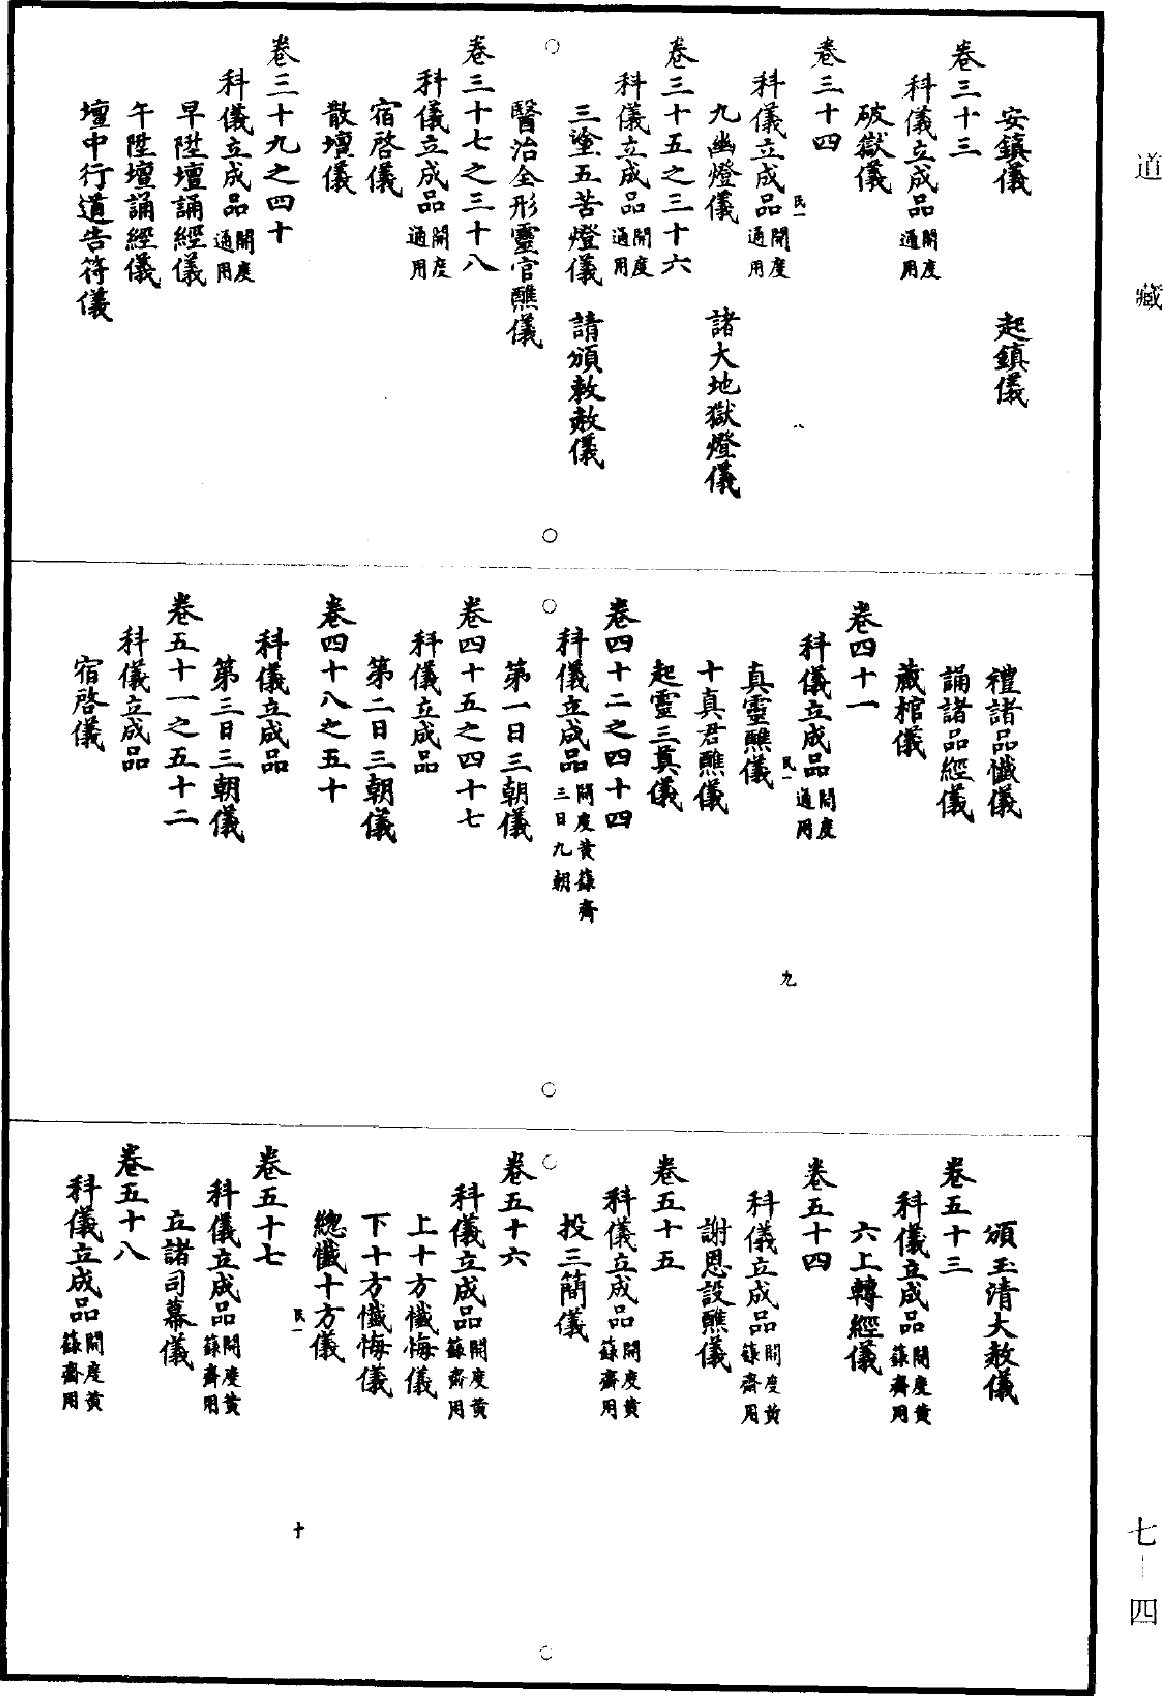 道藏
安鎮儀　起鎮儀
卷三十三
科儀立成品開度通用
破獄儀
卷三十四
民一　八
科儀立成品開度通用
九幽燈儀　諸大地獄燈儀
卷三十五之三十六
科儀立成品開度通用
三塗五苦燈儀　請頒敕赦儀
醫治全形靈官醮儀
卷三十七之三十八
科儀立成品開度通用
宿啓儀
散壇儀
卷三十九之四十
科儀立成品開度通用
早陞壇誦經儀
午陞壇誦經儀
壇中行道告符儀
禮諸品懺儀
誦諸品經儀
藏棺儀
卷四十一
科儀立成品開度通用
民一　九
真靈醮儀
十真君醮儀
起靈三奠儀
卷四十二之四十四
科儀立成品開度黃籙齋三日九朝
第一日三朝儀
卷四十五之四十七
科儀立成品
第二日三朝儀
卷四十八之五十
科儀立成品
第三日三朝儀
卷五十一之五十二
科儀立成品
宿啓儀
頒玉清大赦儀
卷五十三
科儀立成品開度黃籙齋用
六上轉經儀
卷五十四
科儀立成品開度黃籙齋用
謝恩設醮儀
卷五十五
科儀立成品開度黃籙齋用
投三簡儀
卷五十六
科儀立成品開度黃籙齋用
上十方懺悔儀
下十方懺悔儀
總懺十方儀
民一　十
卷五十七
科儀立成品開度黃籙齋用
立諸司幕儀
卷五十八
科儀立成品開度黃籙齋用
七—四